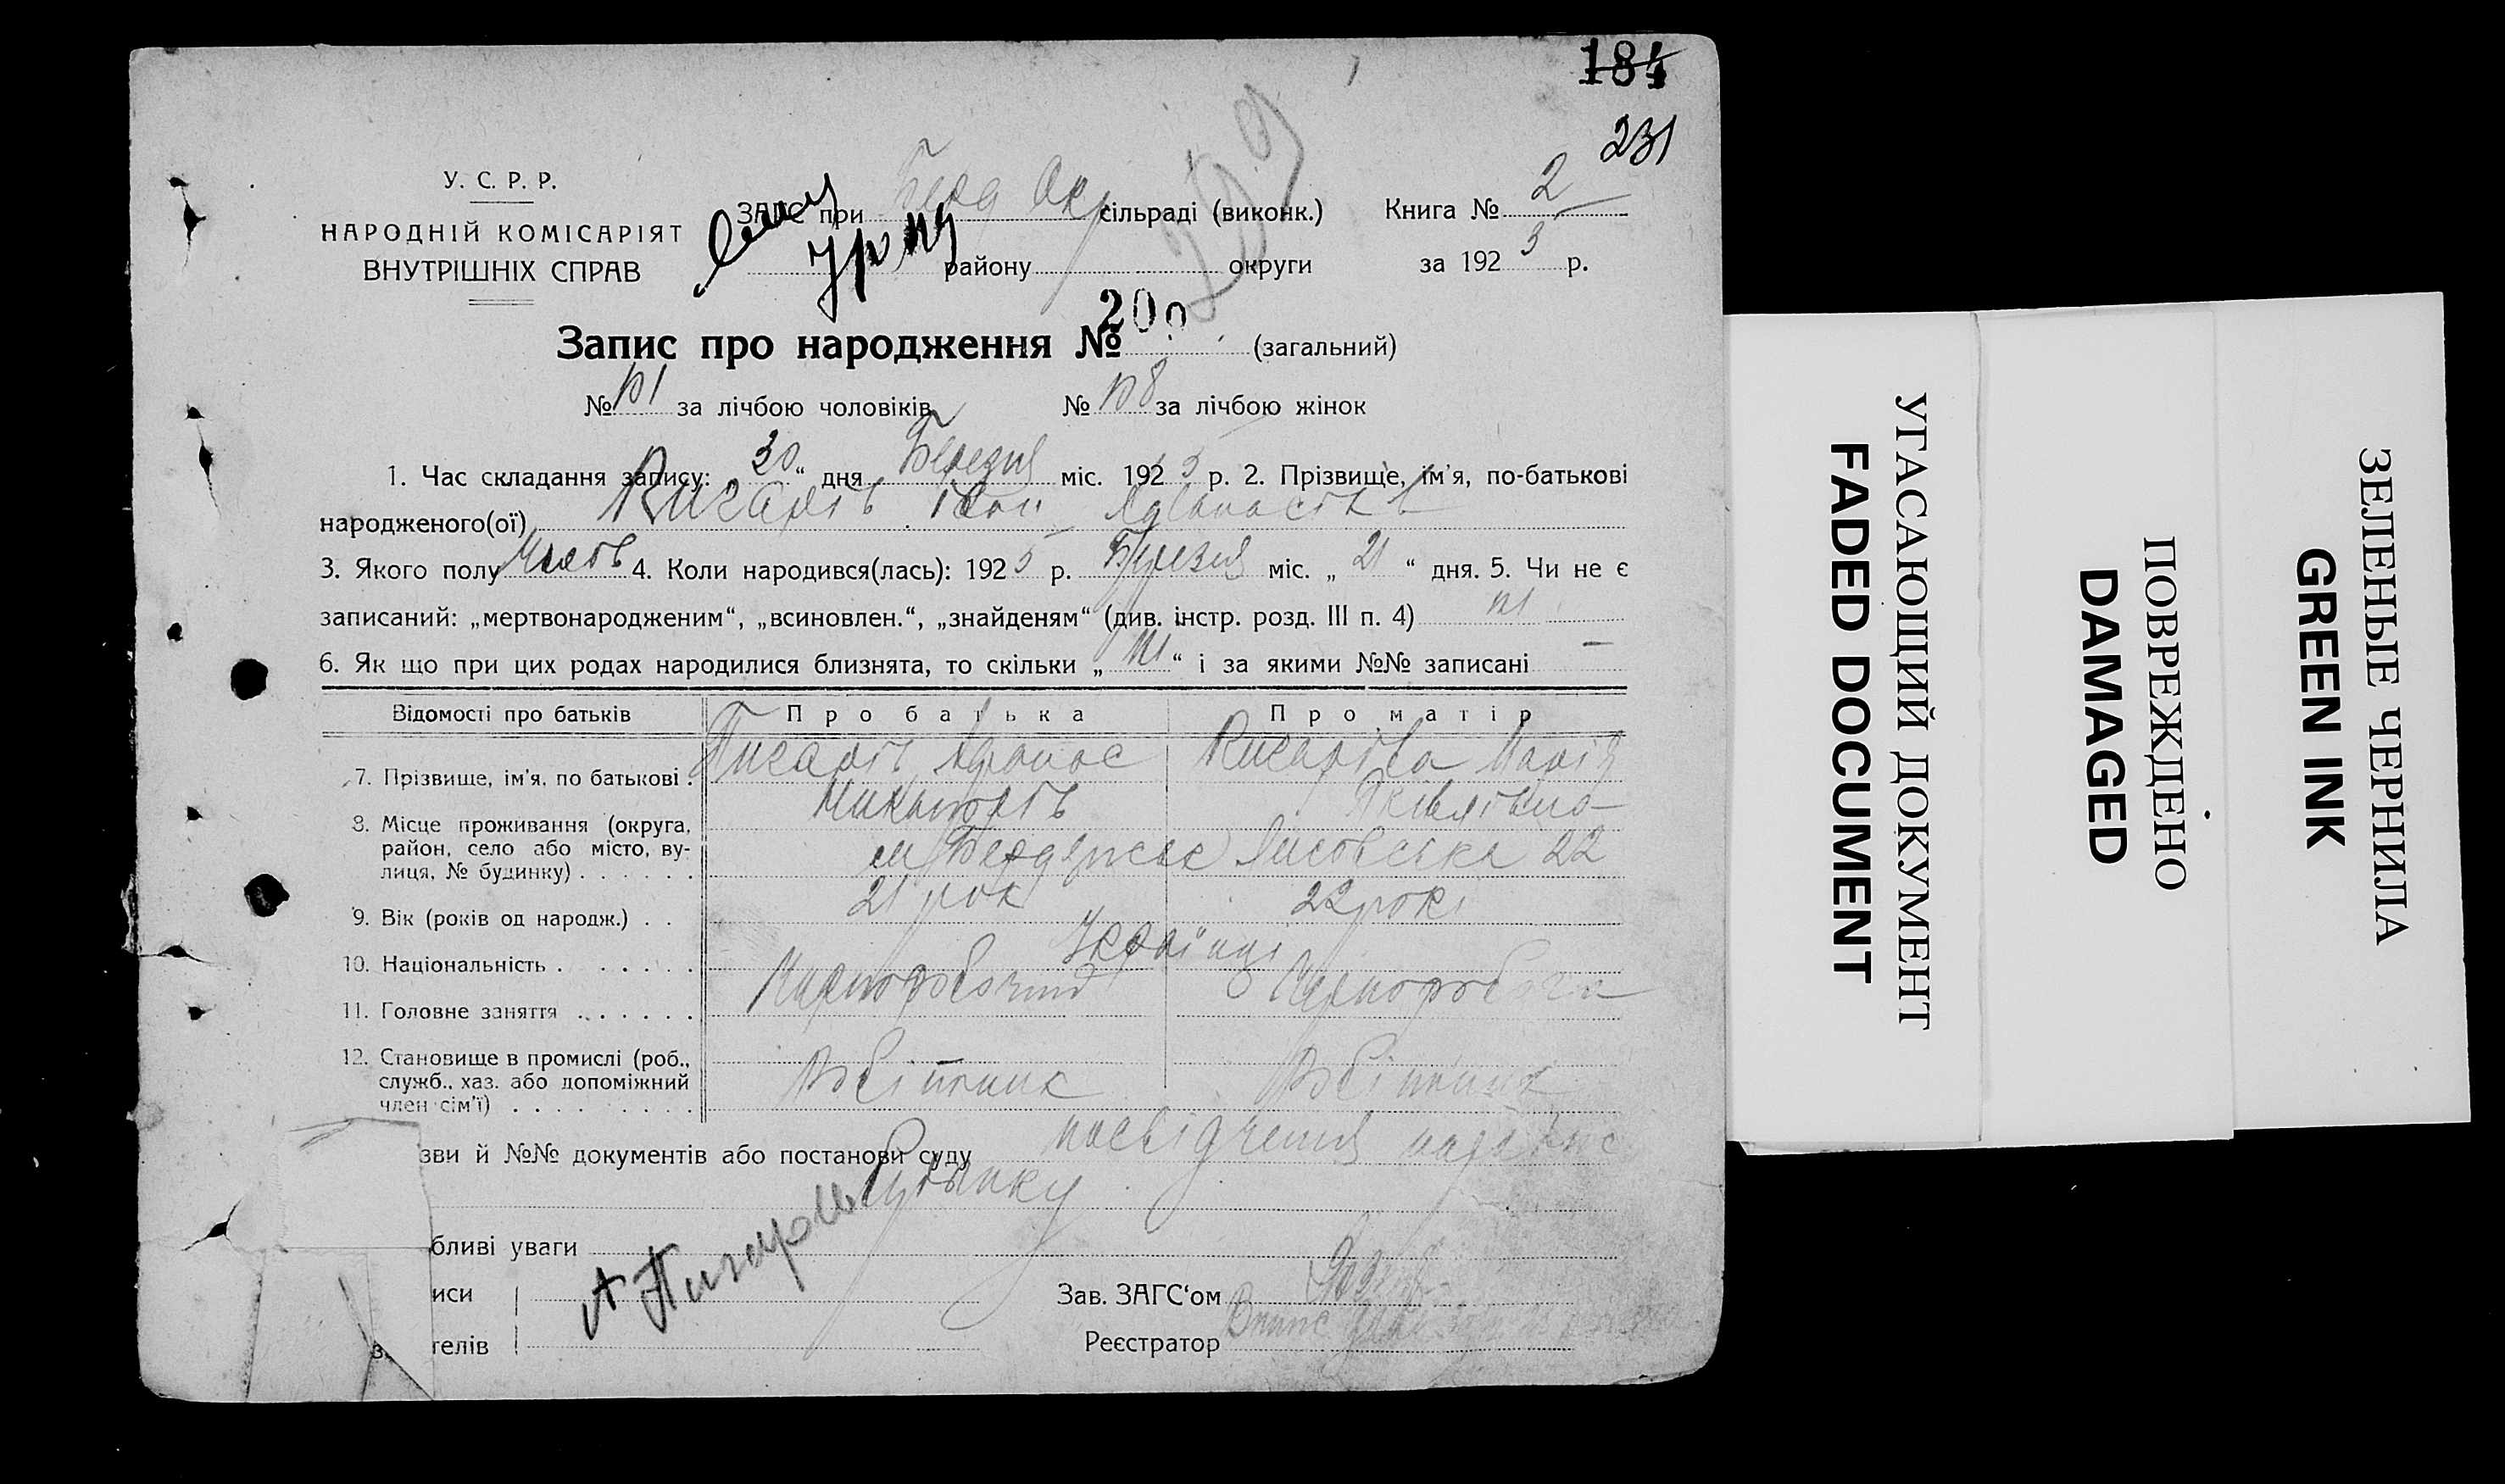 184
231
У. С. Р. Р.
НАРОДНІЙ КОМІСАРІЯТ
ВНУТРІШНІХ СПРАВ
ЗАГС при Берд Окр сільраді (виконк.) Книга № 2
району округи за 192 р.
Запис про народження № 200 (загальний)
№ за лічбою чоловіків № за лічбою жінок
1. Час складання запису: „30“ дня Березня міс. 1925 р. 2. Прізвище, ім'я, по-батькові
народженого(ої) Писарів Іван
3. Якого полу 4. Коли народився(лась): 1925 р. Березня міс. „ 21 “ дня. 5. Чи не є
записаний: „мертвонародженим“, „всиновлен.“, „знайденям“ (див. інстр. розд. III п. 4) ні
6. Як що при цих родах народилися близнята, то скільки „ ні “ і за якими №№ записані —
Відомості про батьків Про батька Про матір
7. Прізвище, ім'я, по батькові . Писарів Афанас Писаріва Марія
Яківлівна
8. Місце проживання (округа, район, село або місто, вулиця, № будинку) . . . . . . м Бердянськ Лисовська 22
9. Вік (років од народж.) . . 21 рок 22 рокі
10. Національність . . . . . . Українці
11. Головне заняття . . . . . . Чорноробочий Чорноробоча
12. Становище в промислі (роб., служб., хаз. або допоміжний член сім'ї) . . . . . . . . Робітник Робітник
зви й №№ документів або постанови суду посвідчення
будинку
бливі уваги
иси А Писарів Зав. ЗАГС‘ом
телів Реєстратор
УГАСАЮЩИЙ ДОКУМЕНТ
FADED DOCUMENT
ПОВРЕЖДЕНО
DAMAGED
ЗЕЛЕНЫЕ ЧЕРНИЛА
GREEN INK